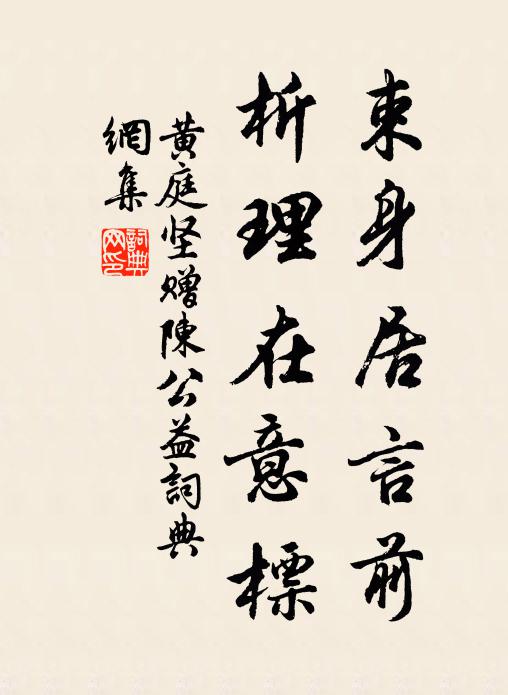 束身居言前
析理在意標
黄庭坚赠陳公益詞典
網集
詞典
网印